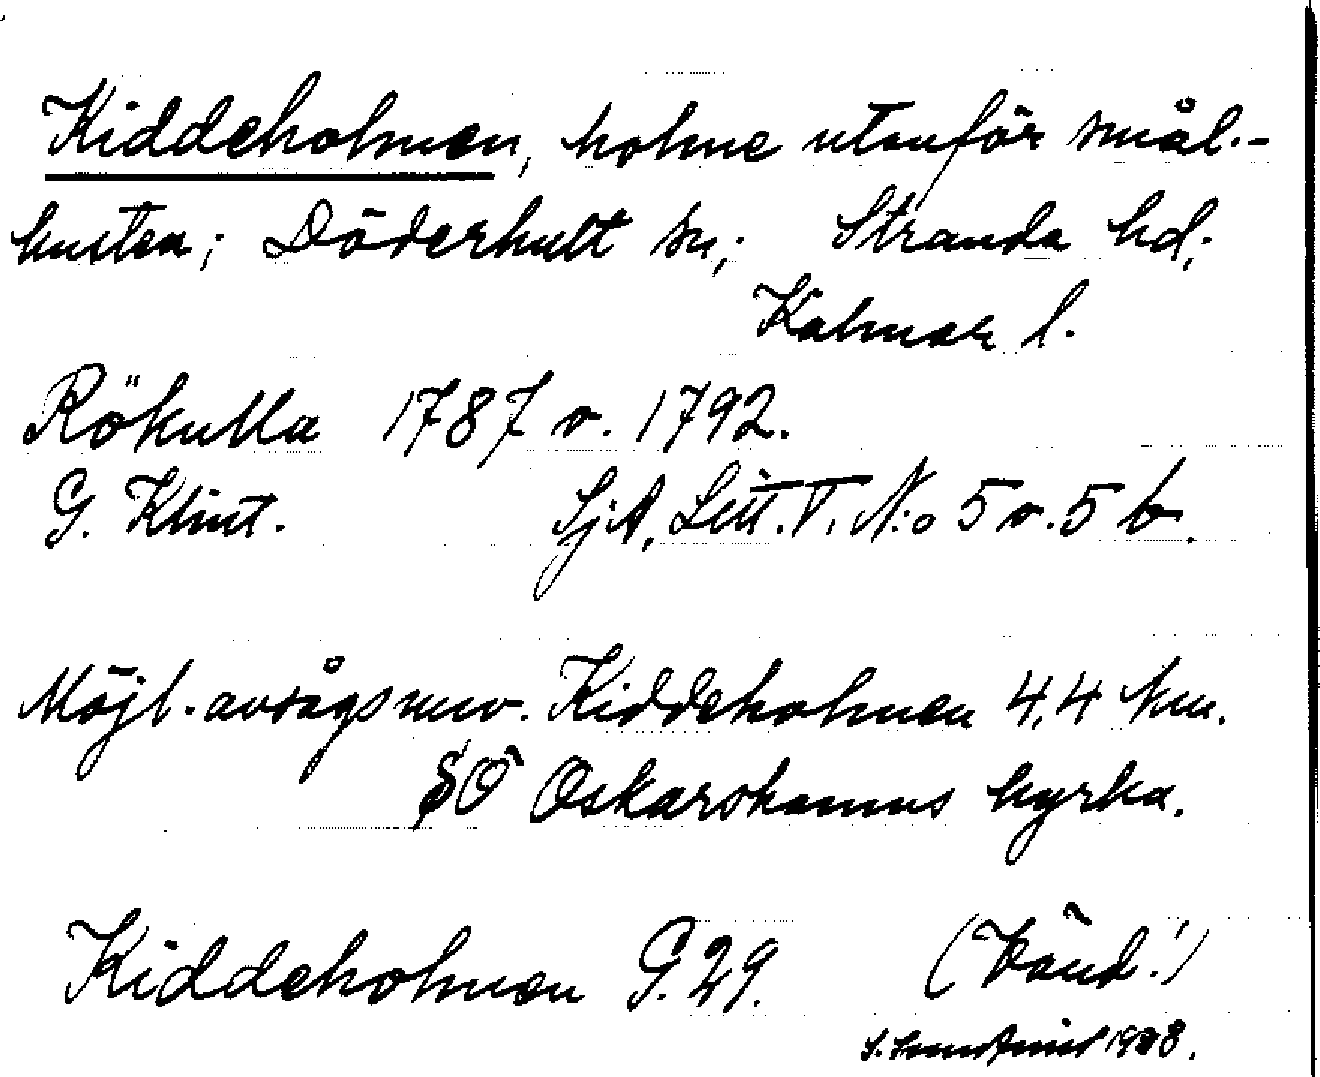 Kiddeholmen, holme utanför smål.-
kusten; Döderhult sn; Stranda hd;
Kalmar l.
Rökulla 1787 o. 1792.
G. Klint. SjA, Litt. T. N:o 5 o. 5 b.
Möjl. avsågs nuv. Kiddeholmen 4,4 km.
SO Oskarshamns kyrka.
Kiddeholmen G. 29. (Vänd!)